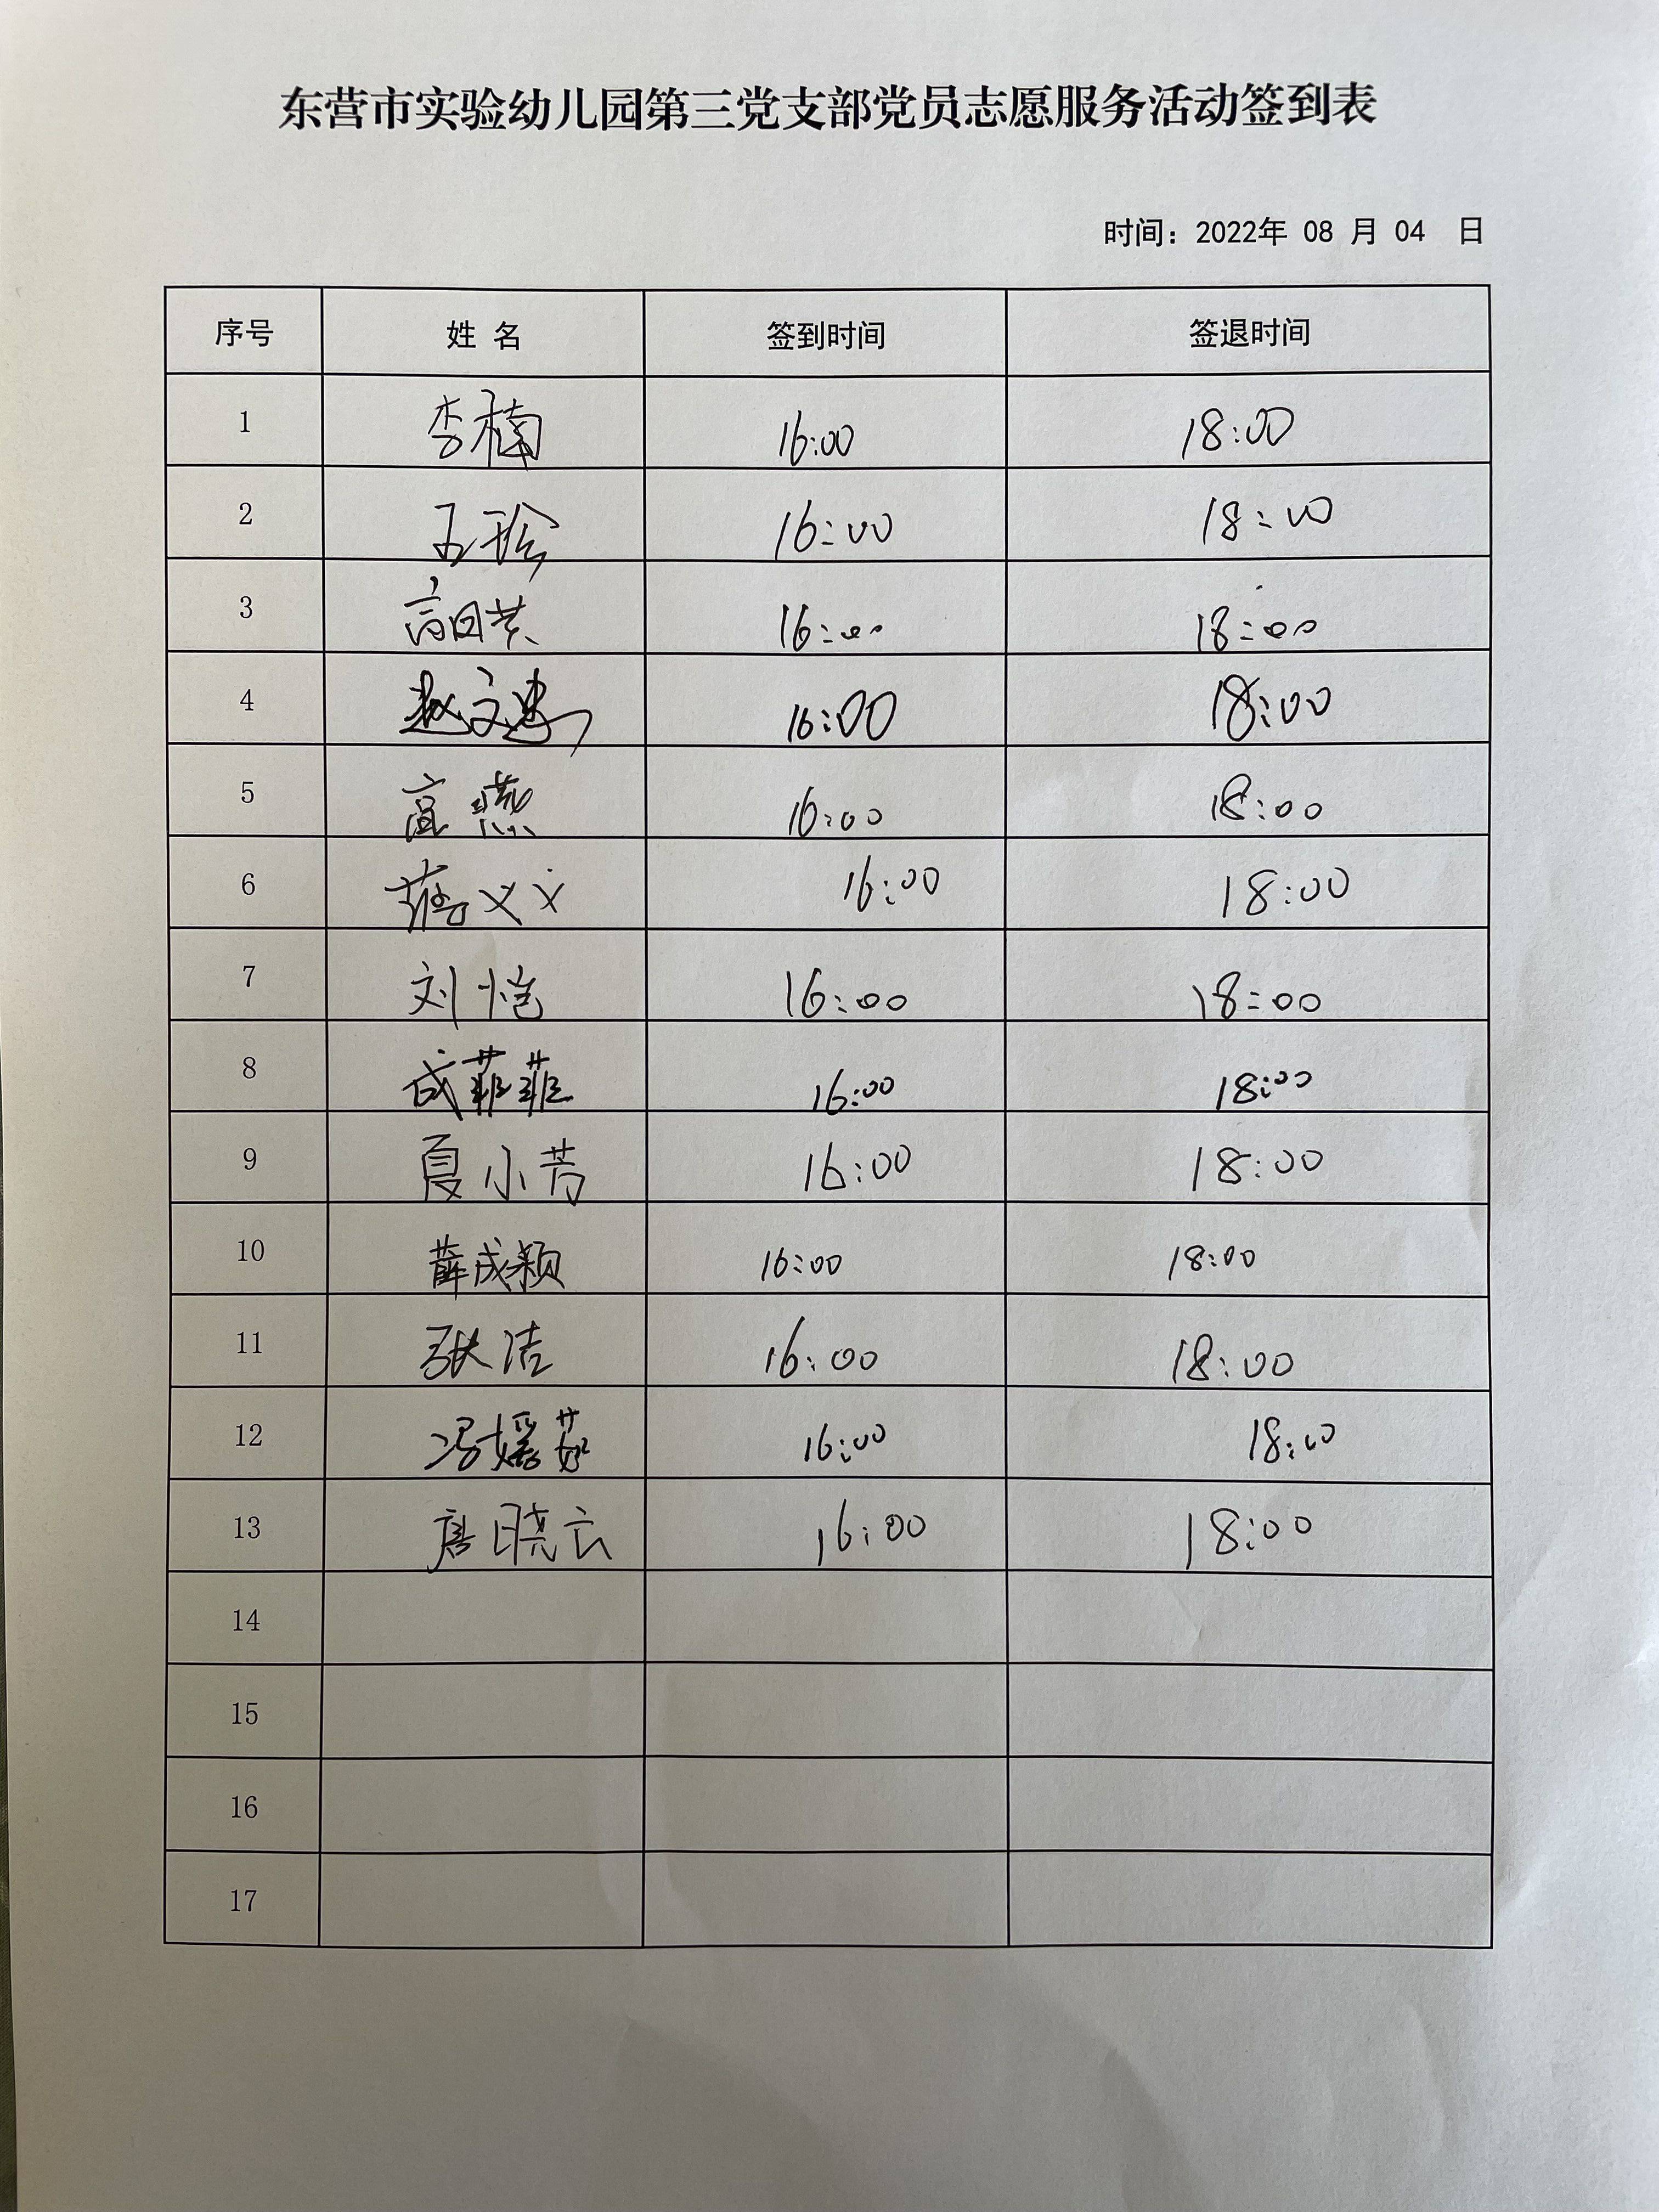 东营市实验幼儿园第三党支部党员志愿服务活动签到表
时间：2022年 08 月 04 日
序号 姓 名 签到时间 签退时间
1 李楠 16:00 18:00
2 王珍 16:00 18:00
3 16:00 18:00
4 16:00 18:00
5 高燕 16:00 18:00
6 蒋义文 16:00 18:00
7 刘恺 16:00 18:00
8 成菲菲 16:00 18:00
9 夏小芳 16:00 18:00
10 薛成颖 16:00 18:00
11 张洁 16:00 18:00
12 冯媛茹 16:00 18:00
13 唐晓云 16:00 18:00
14
15
16
17